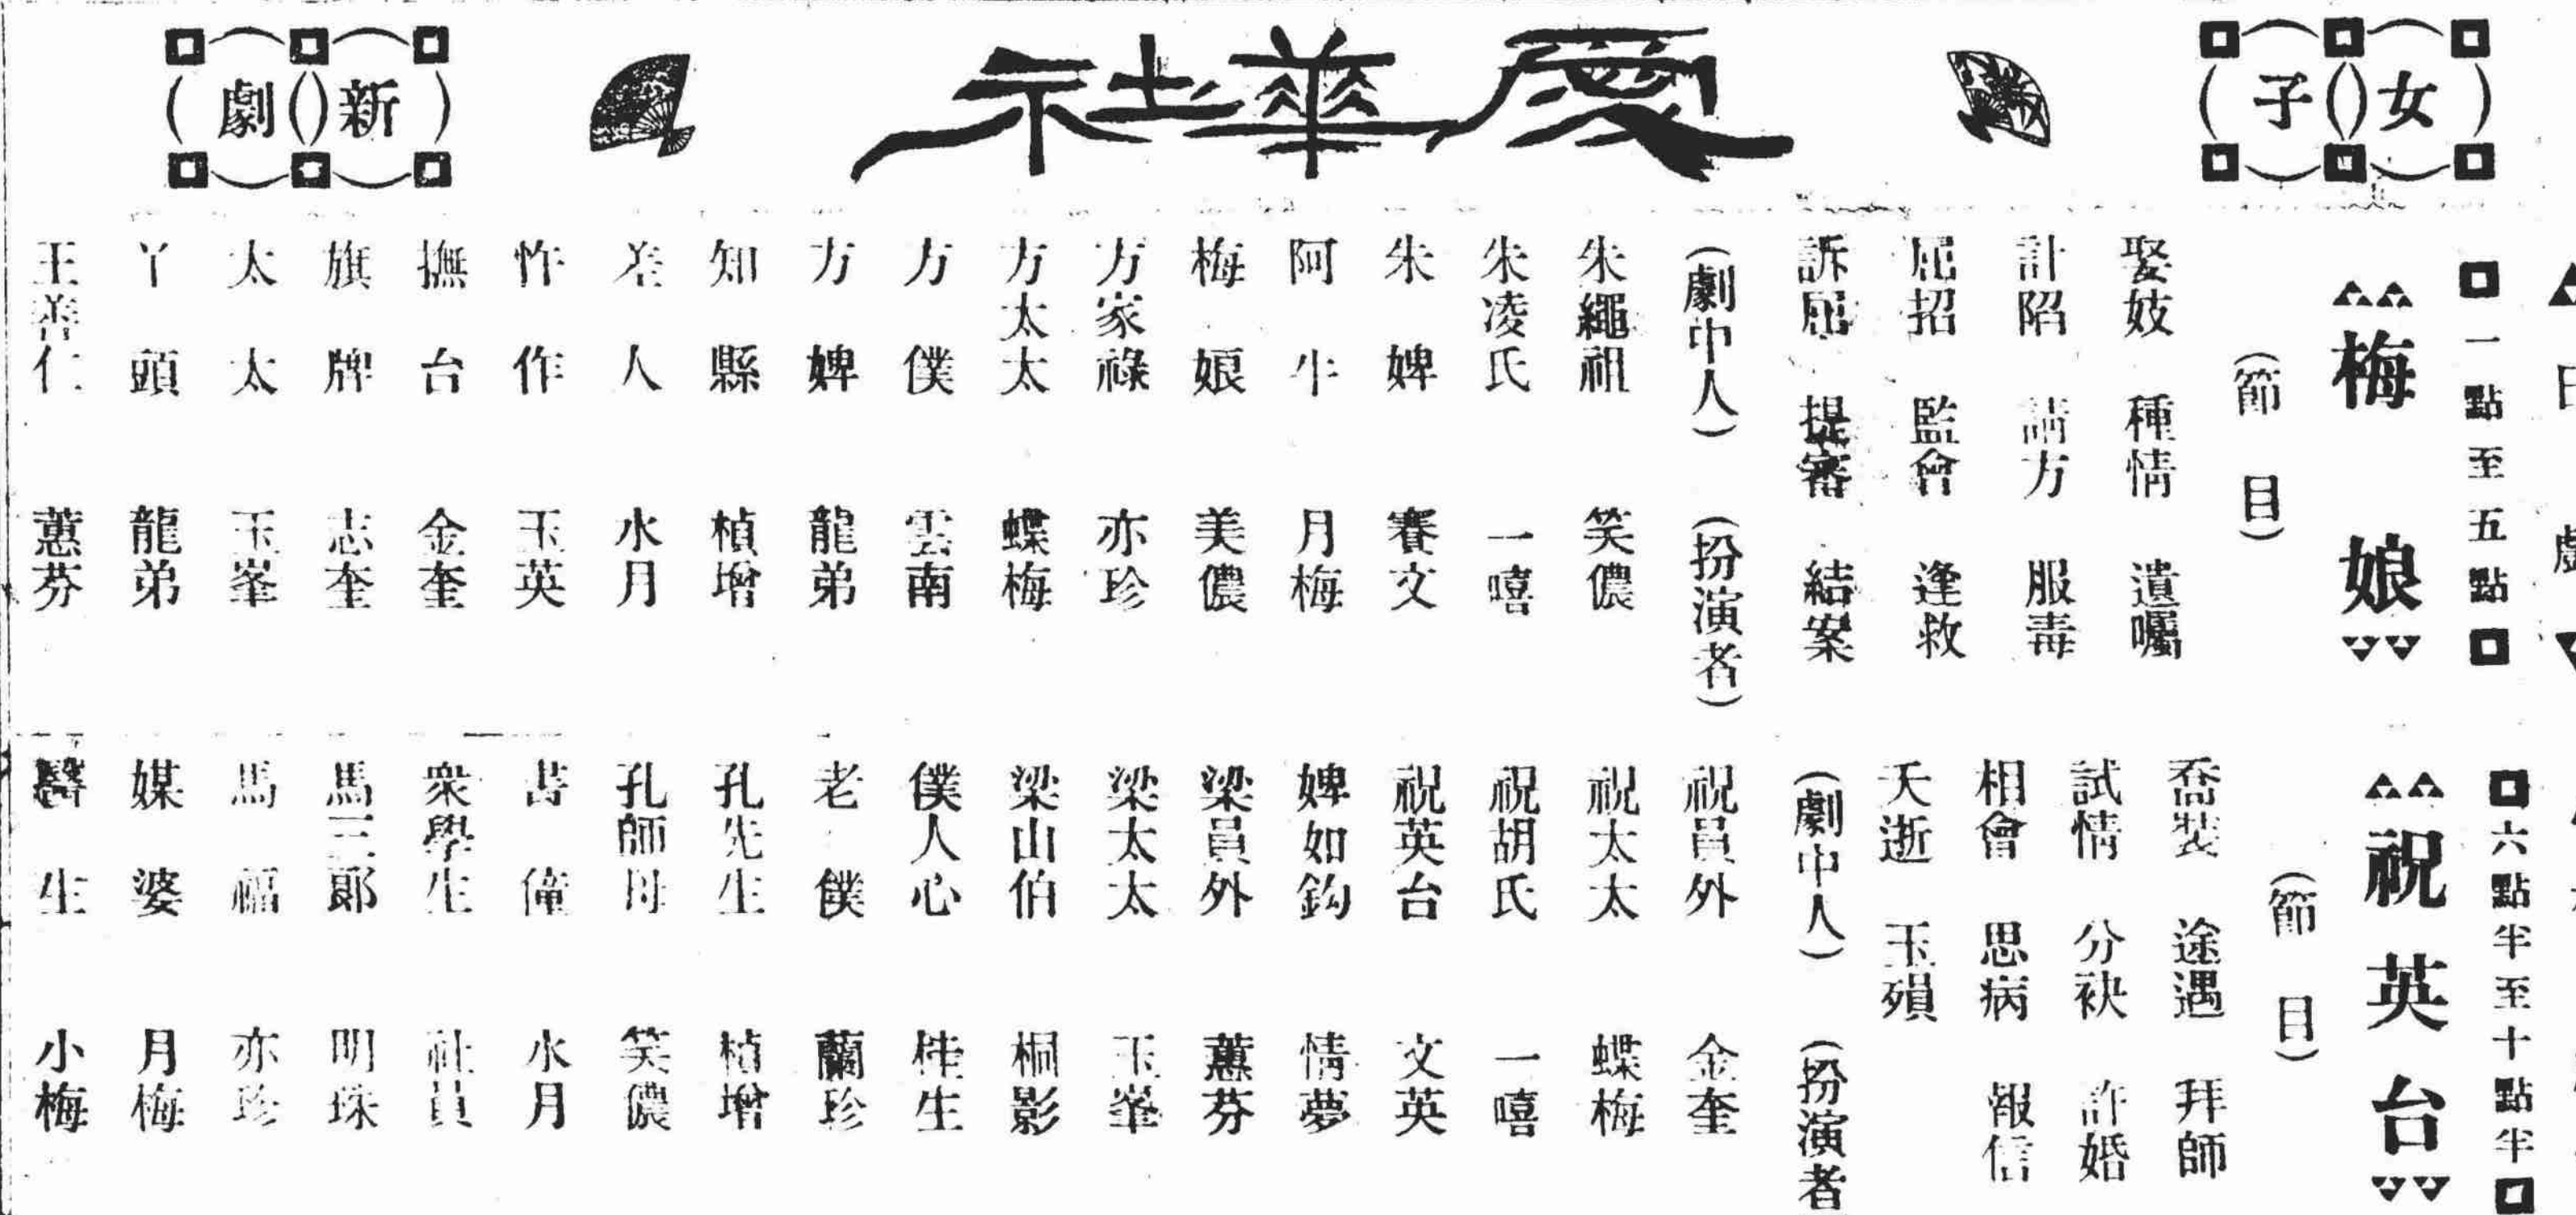 女子
愛華社
新劇
日戲
一點至五點
梅娘
(節目)
娶妓 種情 遺囑
計陷 請方 服毒
屈招 監會 逢救
訴屈 提審 結案
(劇中人) (扮演者)
朱繩祖 笑儂
朱凌氏 一嘻
朱婢 賽文
阿牛 月梅
梅娘 美儂
方家祿 亦珍
方太太 蝶梅
方僕 雲南
方婢 龍弟
知縣 楨增
差人 水月
忤作 玉英
撫台 金奎
旗牌 志奎
太太 玉峯
丫頭 龍弟
王善仁 蕙芬
六點半至十點半
祝英台
(節目)
喬裝 途遇 拜師
試情 分袂 許婚
相會 思病 報信
夭逝 玉殞
(劇中人) (扮演者
祝員外 金奎
祝太太 蝶梅
祝胡氏 一嘻
祝英台 文英
婢如鈎 情夢
梁員外 蕙芬
梁太太 玉峯
梁山伯 桐影
僕人心 桂生
老僕 蘭珍
孔先生 楨增
孔師母 笑儂
書僮 水月
衆學生 社員
馬三郞 明珠
馬福 亦珍
媒婆 月梅
醫生 小梅